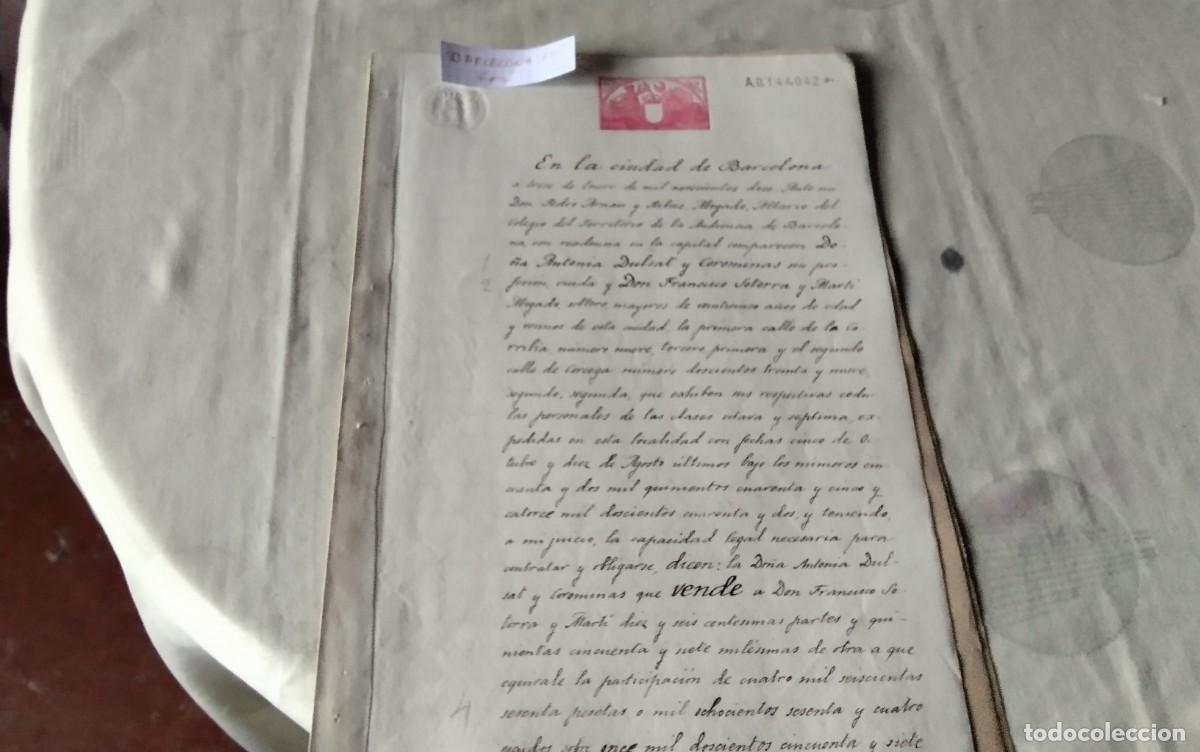 BARCELONA
A0144042
En la ciudad de Barcelona
a trece de Enero de mil novecientos doce. Ante mi
Don Pedro Arnau y Ribas, Abogado, Notario del
Colegio del Territorio de la Audiencia de Barcelo-
na, con residencia en la capital comparecen Do-
1
ña Antonia Dulsat y Corominas sin pro-
2
fesion, viuda y Don Francisco Soterra y Martí
Abogado, soltero, mayores de veinticinco años de edad
y vecinos de esta ciudad, la primera calle de la Co-
rribia, número nueve, tercero, primera y el segundo
calle de Corcega número doscientos treinta y nueve,
segundo, segunda, que exhiben sus respectivas cedu-
las personales de las clases octava y septima, ex-
pedidas en esta localidad con fechas cinco de Oc-
tubre y diez de Agosto últimos bajo los números cin-
cuenta y dos mil quinientos cuarenta y cinco y
catorce mil doscientos cuarenta y dos, y teniendo,
a mi juicio, la capacidad legal necesaria para
contratar y obligarse, dicen: la Doña Antonia Dul-
sat y Corominas que vende a Don Francisco So-
terra y Martí diez y seis centesimas partes y qui-
nientas cincuenta y siete milésimas de otra a que
equivale la participación de cuatro mil seiscientas
4
sesenta pesetas o mil ochocientos sesenta y cuatro
escudos sobre once mil doscientos cincuenta y siete
todocoleccion